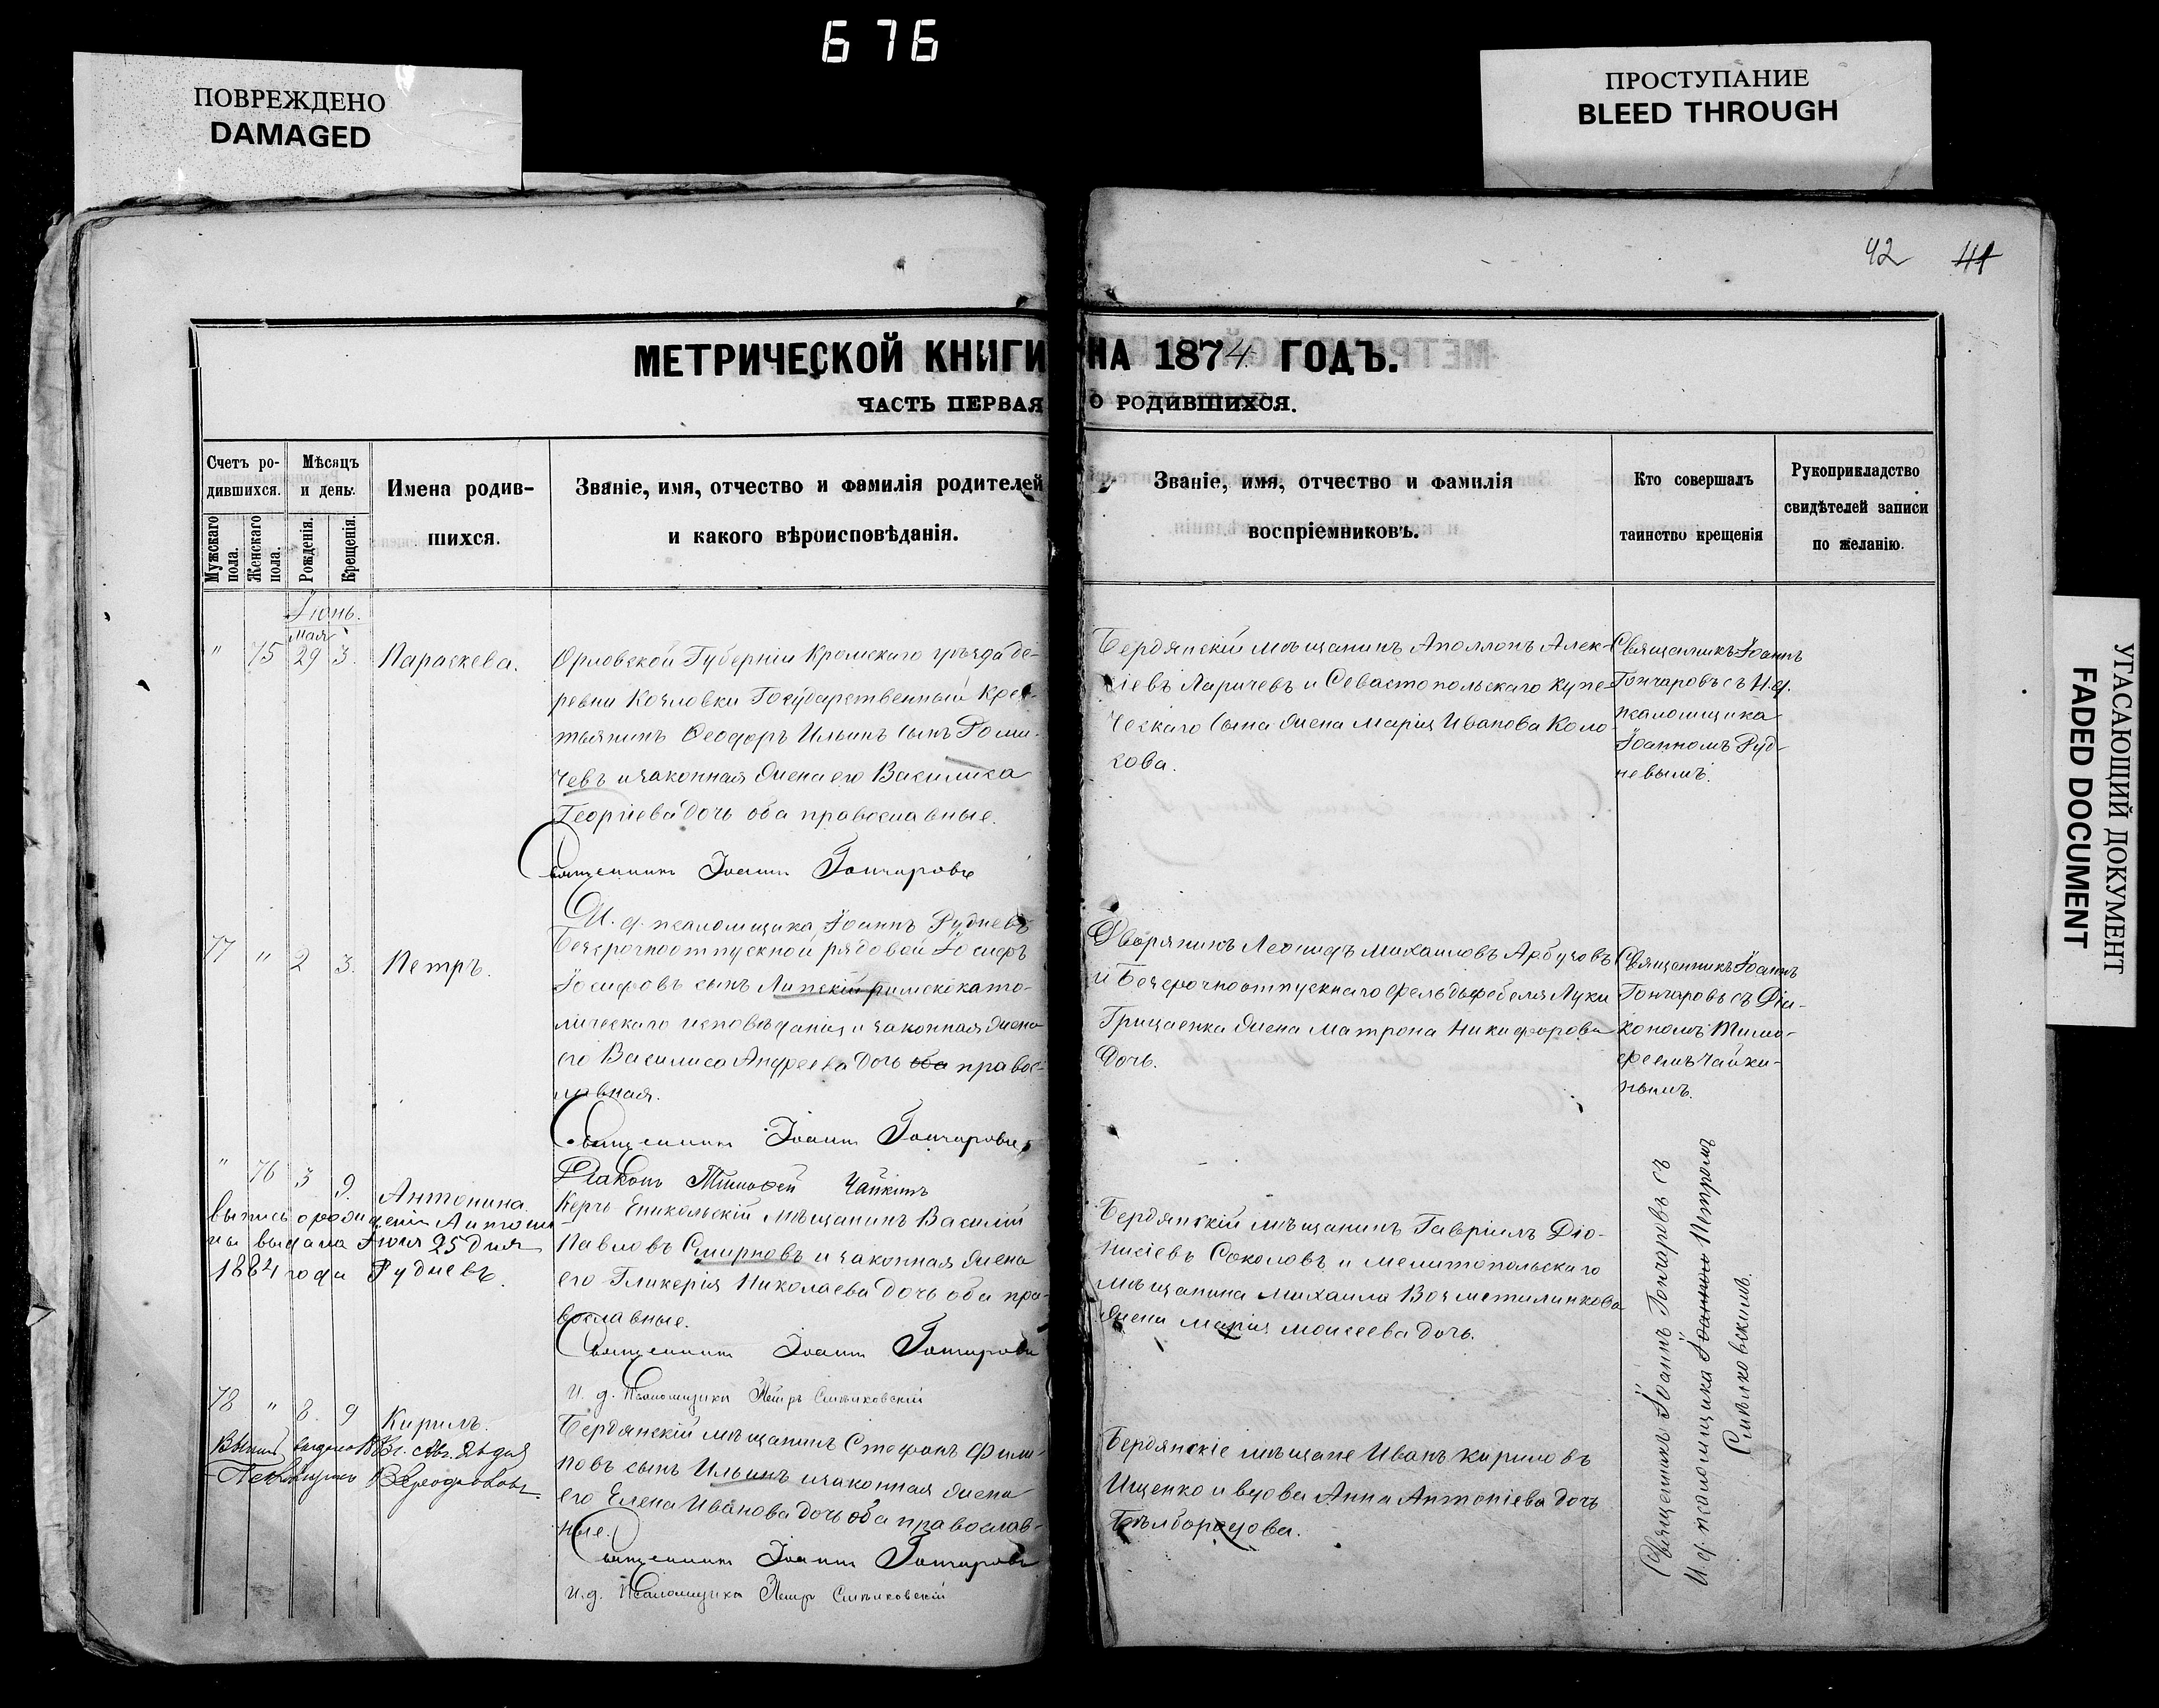 676
ПОВРЕЖДЕНО
DAMAGED
ПРОСТУПАНИЕ
BLEED THROUGH
УГАСАЮЩИЙ ДОКУМЕНТ
FADED DOCUMENT
42 41
МЕТРИЧЕСКОЙ КНИГИ НА 1874 ГОДЪ.
ЧАСТЬ ПЕРВАЯ О РОДИВШИХСЯ.
Счетъ ро-
дившихся.
Мужскаго пола.
Женскаго пола.
Мѣсяцъ
и день.
Рожденія.
Крещенія.
Имена родив-
шихся.
Званіе, имя, отчество и фамилія родителей
и какого вѣроисповѣданія.
Званіе, имя, отчество и фамилія
воспріемниковъ.
Кто совершалъ
таинство крещенія
Рукоприкладство
свидѣтелей записи
по желанію.
Іюнь.
мая
" 75 29 3. Параскева.
Орловской Губерніи Кромскаго уѣзда де-
ревни Козловки Государственный Кре-
стьянинъ Ѳеодоръ Ильинъ сынъ
чевъ и законная жена его Василиса
Георгіева дочь оба православные.
Священникъ Іоаннъ Гончаровъ
И. д. псаломщика, Іоаннъ Рудневъ
Бердянскій мѣщанинъ Аполлонъ Алек-
сіевъ Ларичевъ и Севастопольскаго купе-
ческаго сына жена Марія Иванова Коло-
сова.
Священникъ Іоаннъ
Гончаровъ съ И. д.
псаломщика
Іоанномъ Руд-
невымъ.
77 " 2 3. Петръ.
Безсрочноотпускной рядовой Іосифъ
Іосифовъ сынъ Липскій римскокато-
лическаго исповѣданія и законная жена
его Василиса Андреева дочь оба правос-
лавная.
Священникъ Іоаннъ Гончаровъ
Діаконъ Тимофей Чайкинъ
Дворянинъ Леонидъ Михаиловъ Арбузовъ
и Безсрочноотпускнаго фельдфебеля Луки
Грищенка жена Матрона Никифорова
дочь.
Священникъ Іоаннъ
Гончаровъ съ Діа-
кономъ Тимо-
феемъ Чайки-
нымъ.
" 76 3 9. Антонина.
выпись о рожденіи Антони
ны выдана Іюня 25 дня
1884 года Рудневъ.
Керчь Еникольскій мѣщанинъ Василій
Павловъ Смирновъ и законная жена
его Гликерія Николаева дочь оба пра-
вославные.
Священникъ Іоаннъ Гончаровъ
И. д. Псаломщика Петръ Синьковскій
Бердянскій мѣщанинъ Гавріилъ Діо-
нисіевъ Соколовъ и мелитопольскаго
мѣщанина Михаила
жена Марія Моисеева дочь.
Священникъ Іоаннъ Гончаровъ съ
И. д. псаломщика Іоанном Петромъ
Синьковскимъ.
78 " 8. 9 Кирилъ.
Бердянскій мѣщанинъ Стефанъ Фили-
повъ сынъ Ильинъ и законная жена
его Елена Иванова дочь оба православ-
ные.
Священникъ Іоаннъ Гончаровъ
И. д. Псаломщика Петръ Синьковскій
Бердянскіе мѣщане Иванъ Кириловъ
Ищенко и вдова Анна Антоніева дочь
Бѣлбородова.